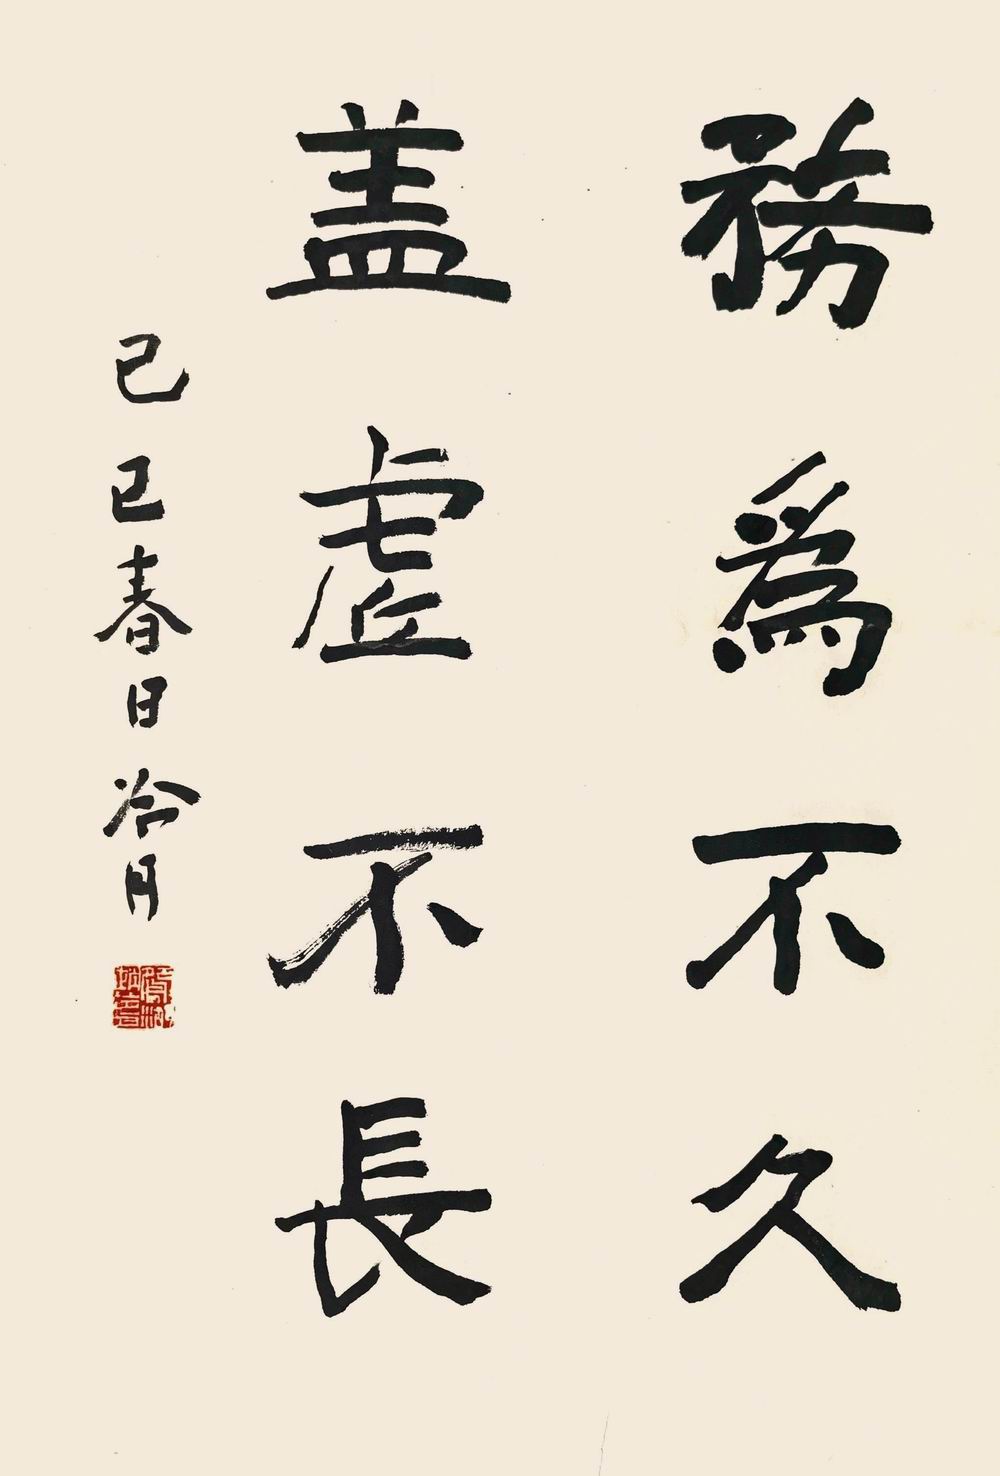 務爲不久
盖虚不長
己巳春日冷月